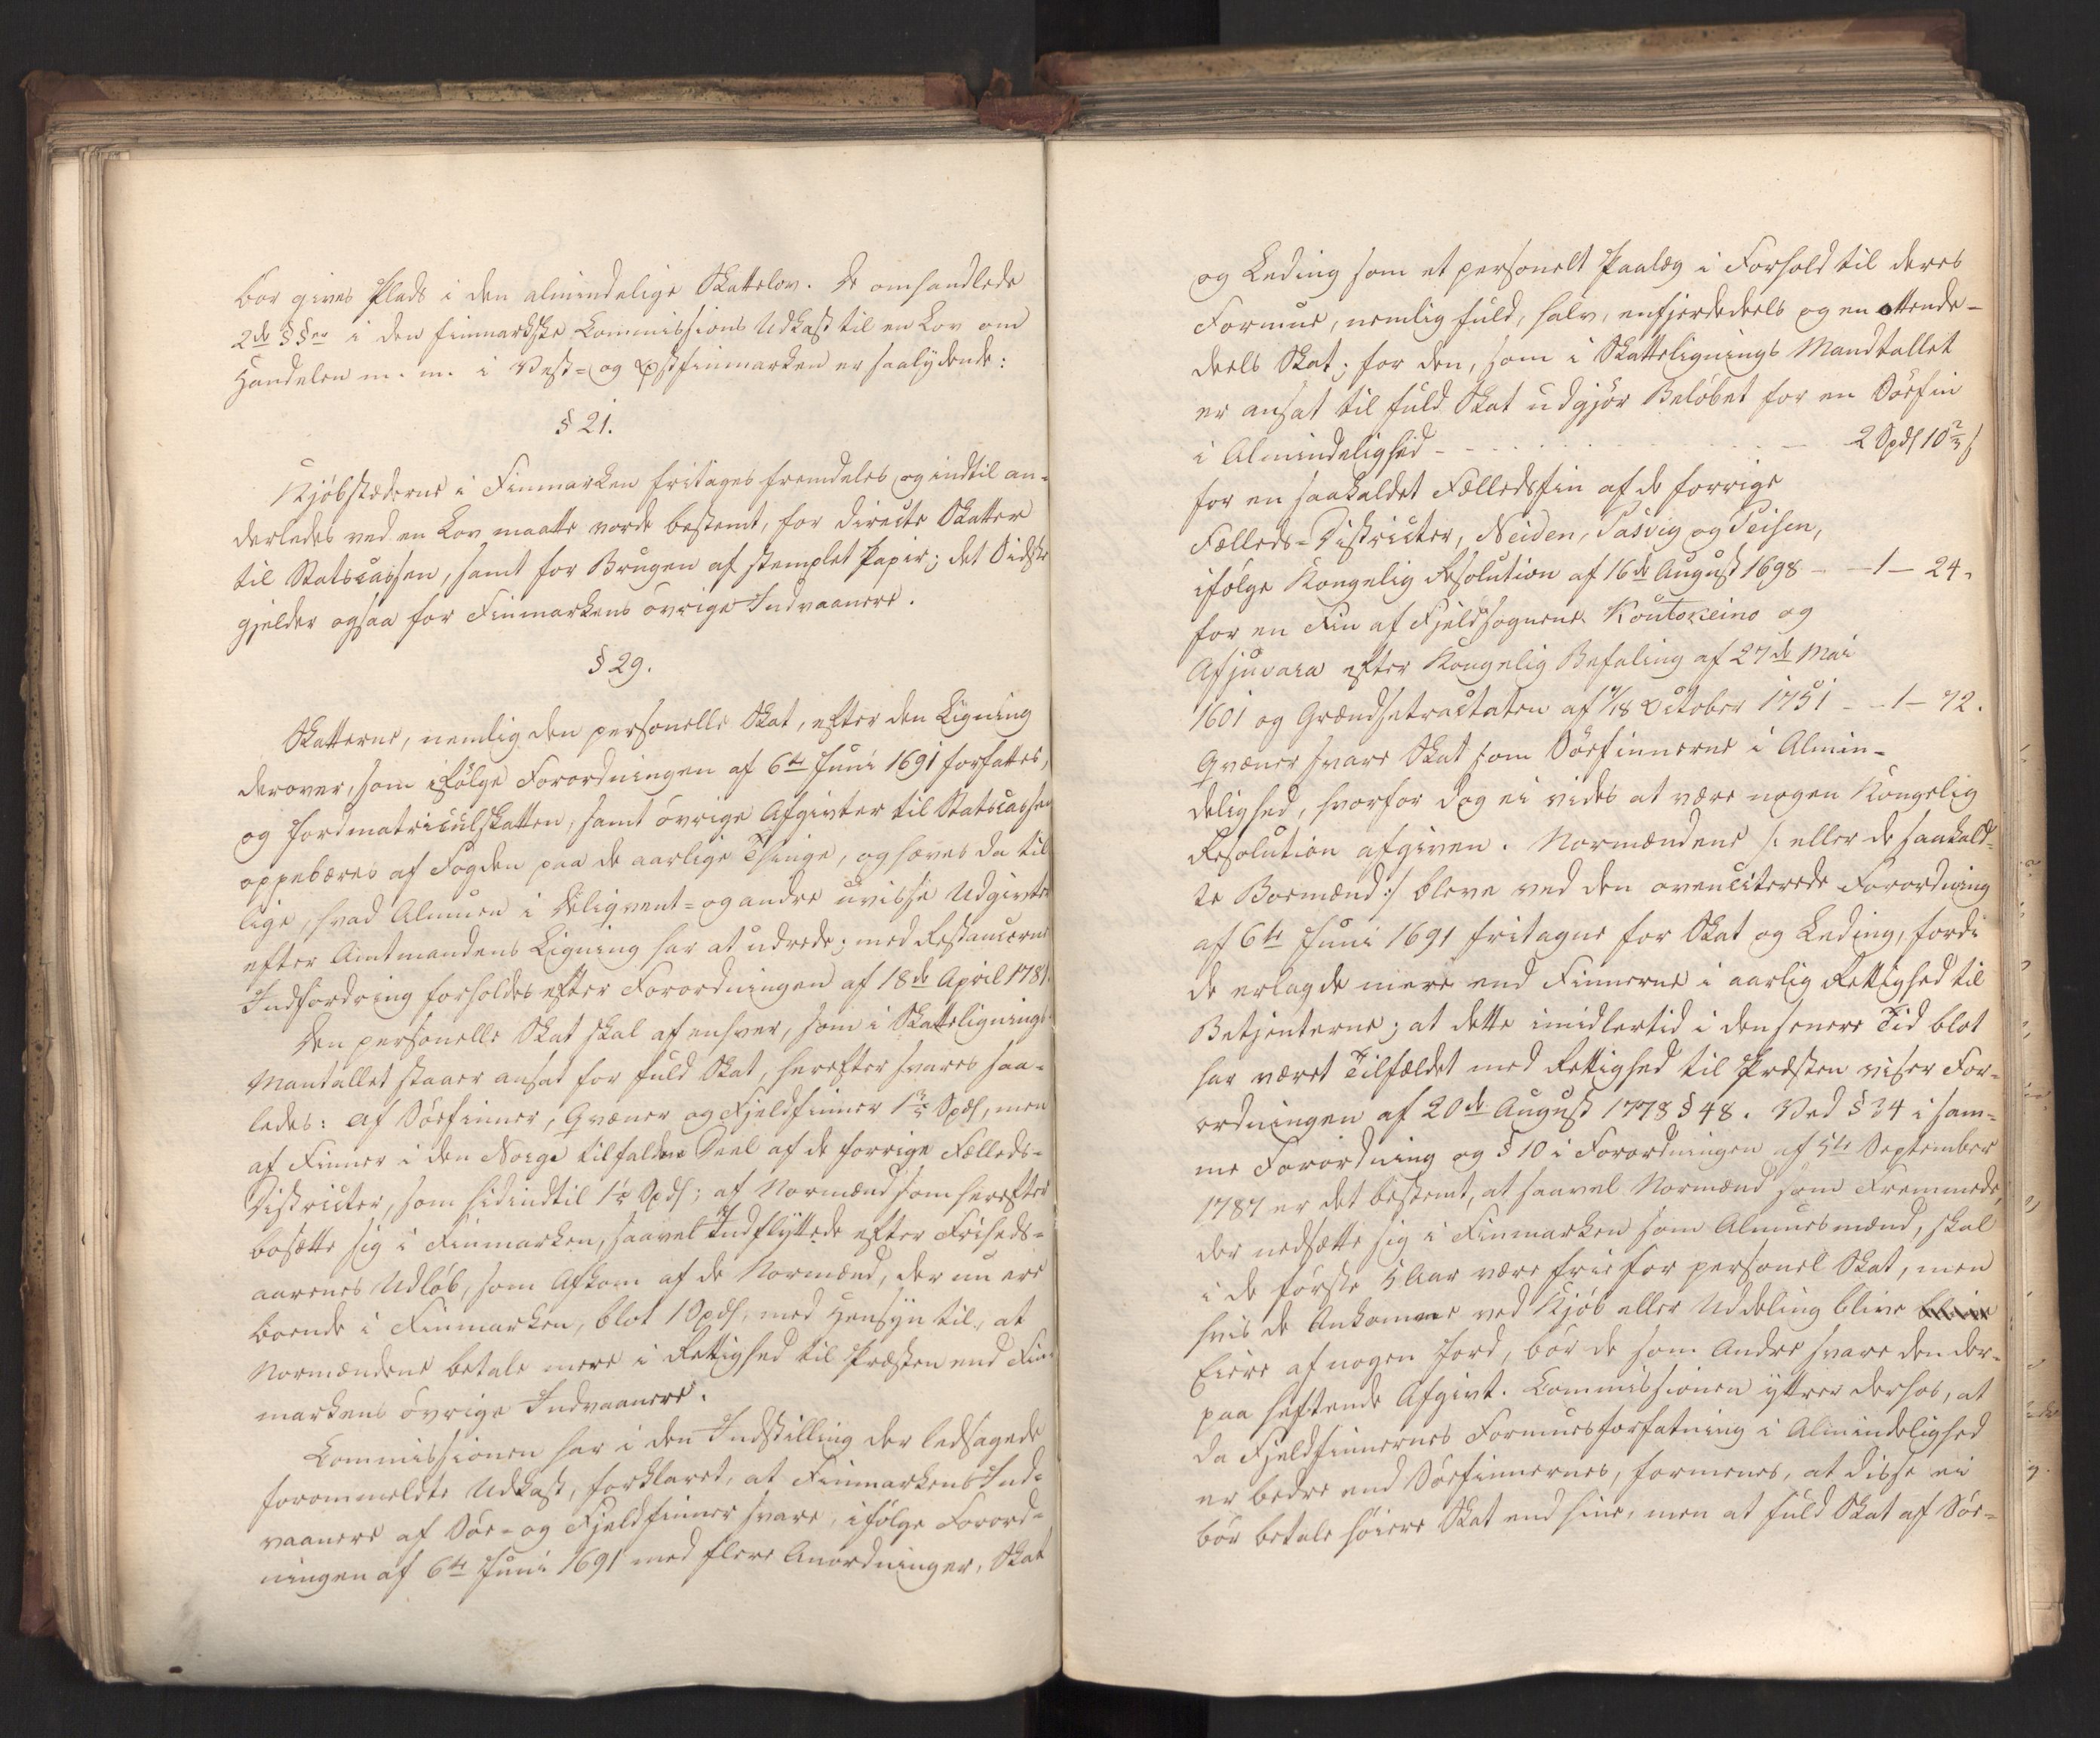 bør gives Plads i den almindelige Skattelov. De omhandlede
2de §§er i den finmarkske Commissions Udkast til en Lov om
Handelen m. m. i Vest- og Østfinmarken er saalydende:
§ 21.
Kjøbstæderne i Finmarken fritages fremdeles, og indtil an-
derledes ved en Lov maatte vorde bestemt, for directe Skatter
til Statscassen, samt for Brugen af stemplet Papir; det Sidste
gjelder ogsaa for Finmarkens øvrige Indvaanere.
§ 29.
Skatterne, nemlig den personelle Skat, efter den Ligning
derover, som ifølge Forordningen af 6te Juni 1691 forfattes,
og Jordmatriculskatten, samt øvrige Afgivter til Statscassen
oppebæres af Fogden paa de aarlige Thinge, og hæves da til
lige, hvad Almuen i Deliqvent- og andre uvisse Udgivter
efter Amtmandens Ligning har at udrede; med Restancerne
Indfordring forholdes efter Forordningen af 18de April 1781.
Den personelle Skat skal af enhver, som i Skattelignings
Mantallet staaer ansat for fuld Skat, herefter svares saa-
ledes: af Søefinner, Qvæner og Fjeldfinner 1 3/5 Spd, men
af Finner i den Norge tilfaldne Deel af de forrige Fælleds-
Districter, som hidindtil 1 1/5 Spd; af Normænd som herefter
bosætte sig i Finmarken, saavel Indflyttede efter Friheds-
aarenes Udløb, som Afkom af de Normænd, der nu ere
boende i Finmarken, blot 1 Spd, med Hensyn til, at
Normændene betale mere i Rettighed til Præsten end Fin-
markens øvrige Indvaanere.
Commissionen har i den Indstilling der ledsagede
forommeldte Udkast, forklaret, at Finmarkens Ind-
vaanere af Søe- og Fjeldfinner svare, ifølge Forord-
ningen af 6te Juni 1691 med flere Anordninger, Skat
og Leding som et personelt Paalæg i Forhold til deres
Formue, nemlig fuld, halv, enfjerdedeels og en ottende-
deels Skat; for den, som i Skattelignings Mandtallet
er ansat til fuld Skat udgjør Beløbet for en Søefin
i Almindelighed - - - - - 2 Spd 10 2/3 s
for en saakaldet Fælledsfin af de forrige
Fælleds-Districter, Neiden, Pasvig og Peisen,
ifølge Kongelig Resolution af 16de August 1698 - - 1 - 24.
for en Fin af Fjeldsognene Koutokeino og
Afjuvara efter Kongelig Befaling af 27de Mai
1601 og Grændsetractaten af 7/18 October 1751 - - 1 - 72.
Qvæner svare Skat som Søefinnerne i Almin-
delighed, hvorfor dog ei vides at være nogen Kongelig
Resolution afgiven. Normændene /: eller de saakald-
te Boemænd :/ bleve ved den ovenciterede Forordning
af 6te Juni 1691 fritagne for Skat og Leding, fordi
de erlagde mere end Finnerne i aarlig Rettighed til
Betjenterne; at dette imidlertid i den senere Tid blot
har været Tilfældet med Rettighed til Præsten viser For-
ordningen af 20de August 1778 § 48. Ved § 34 i sam-
me Forordning og § 10 i Forordningen af 5te September
1787 er det bestemt, at saavel Normænd som Fremmede,
der nedsætte sig i Finmarken som Almuesmænd, skal
i de første 5 Aar være frie for personel Skat, men
hvis de Ankomne ved Kjøb eller Uddeling blive
Eiere af nogen Jord, bør de som Andre svare den der-
paa heftende Afgivt. Commissionen yttrer derhos, at
da Fjeldfinnernes Formuesforfatning i Almindelighed
er bedre end Søefinnernes, formenes, at disse ei
bør betale høiere Skat end hine, men at fuld Skat af Søe-